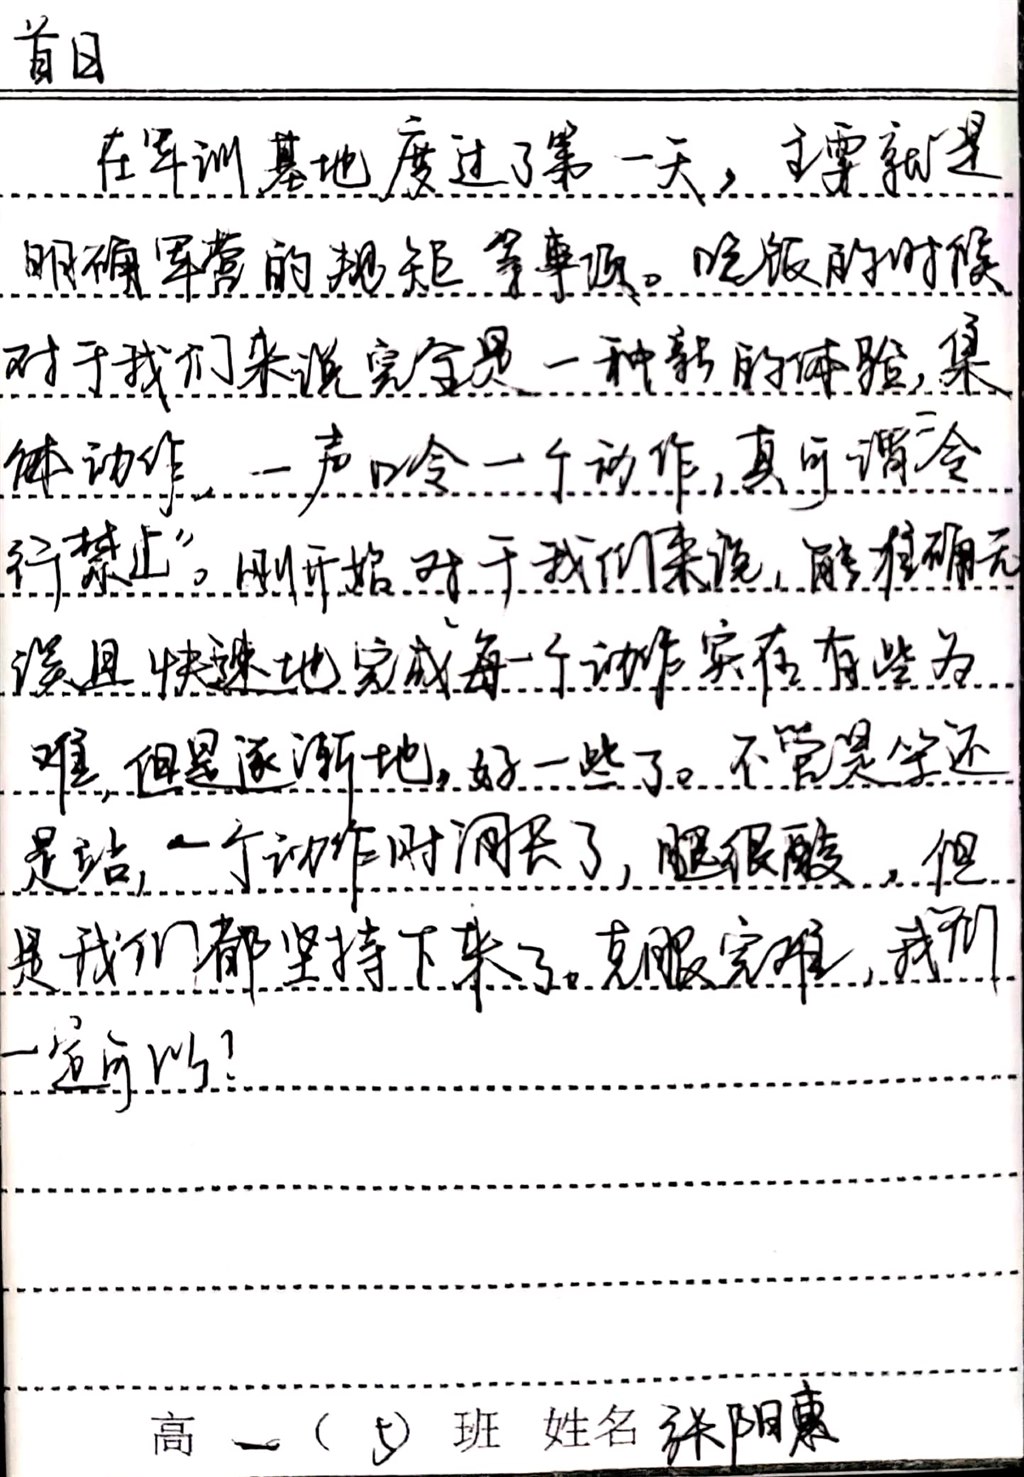 首日
在军训基地度过了第一天，主要就是
明确军营的规矩等事项。吃饭的时候
对于我们来说完全是一种新的体验，集
体动作，一声口令一个动作，真可谓“令
行禁止”。刚开始对于我们来说，能准确无
误且快速地完成每一个动作实在有些为
难，但是逐渐地，好一些了。不管是坐还
是站，一个动作时间长了，腿很酸，但
是我们都坚持下来了。克服完难，我们
一定可以！
高一（5）班 姓名 张阳东